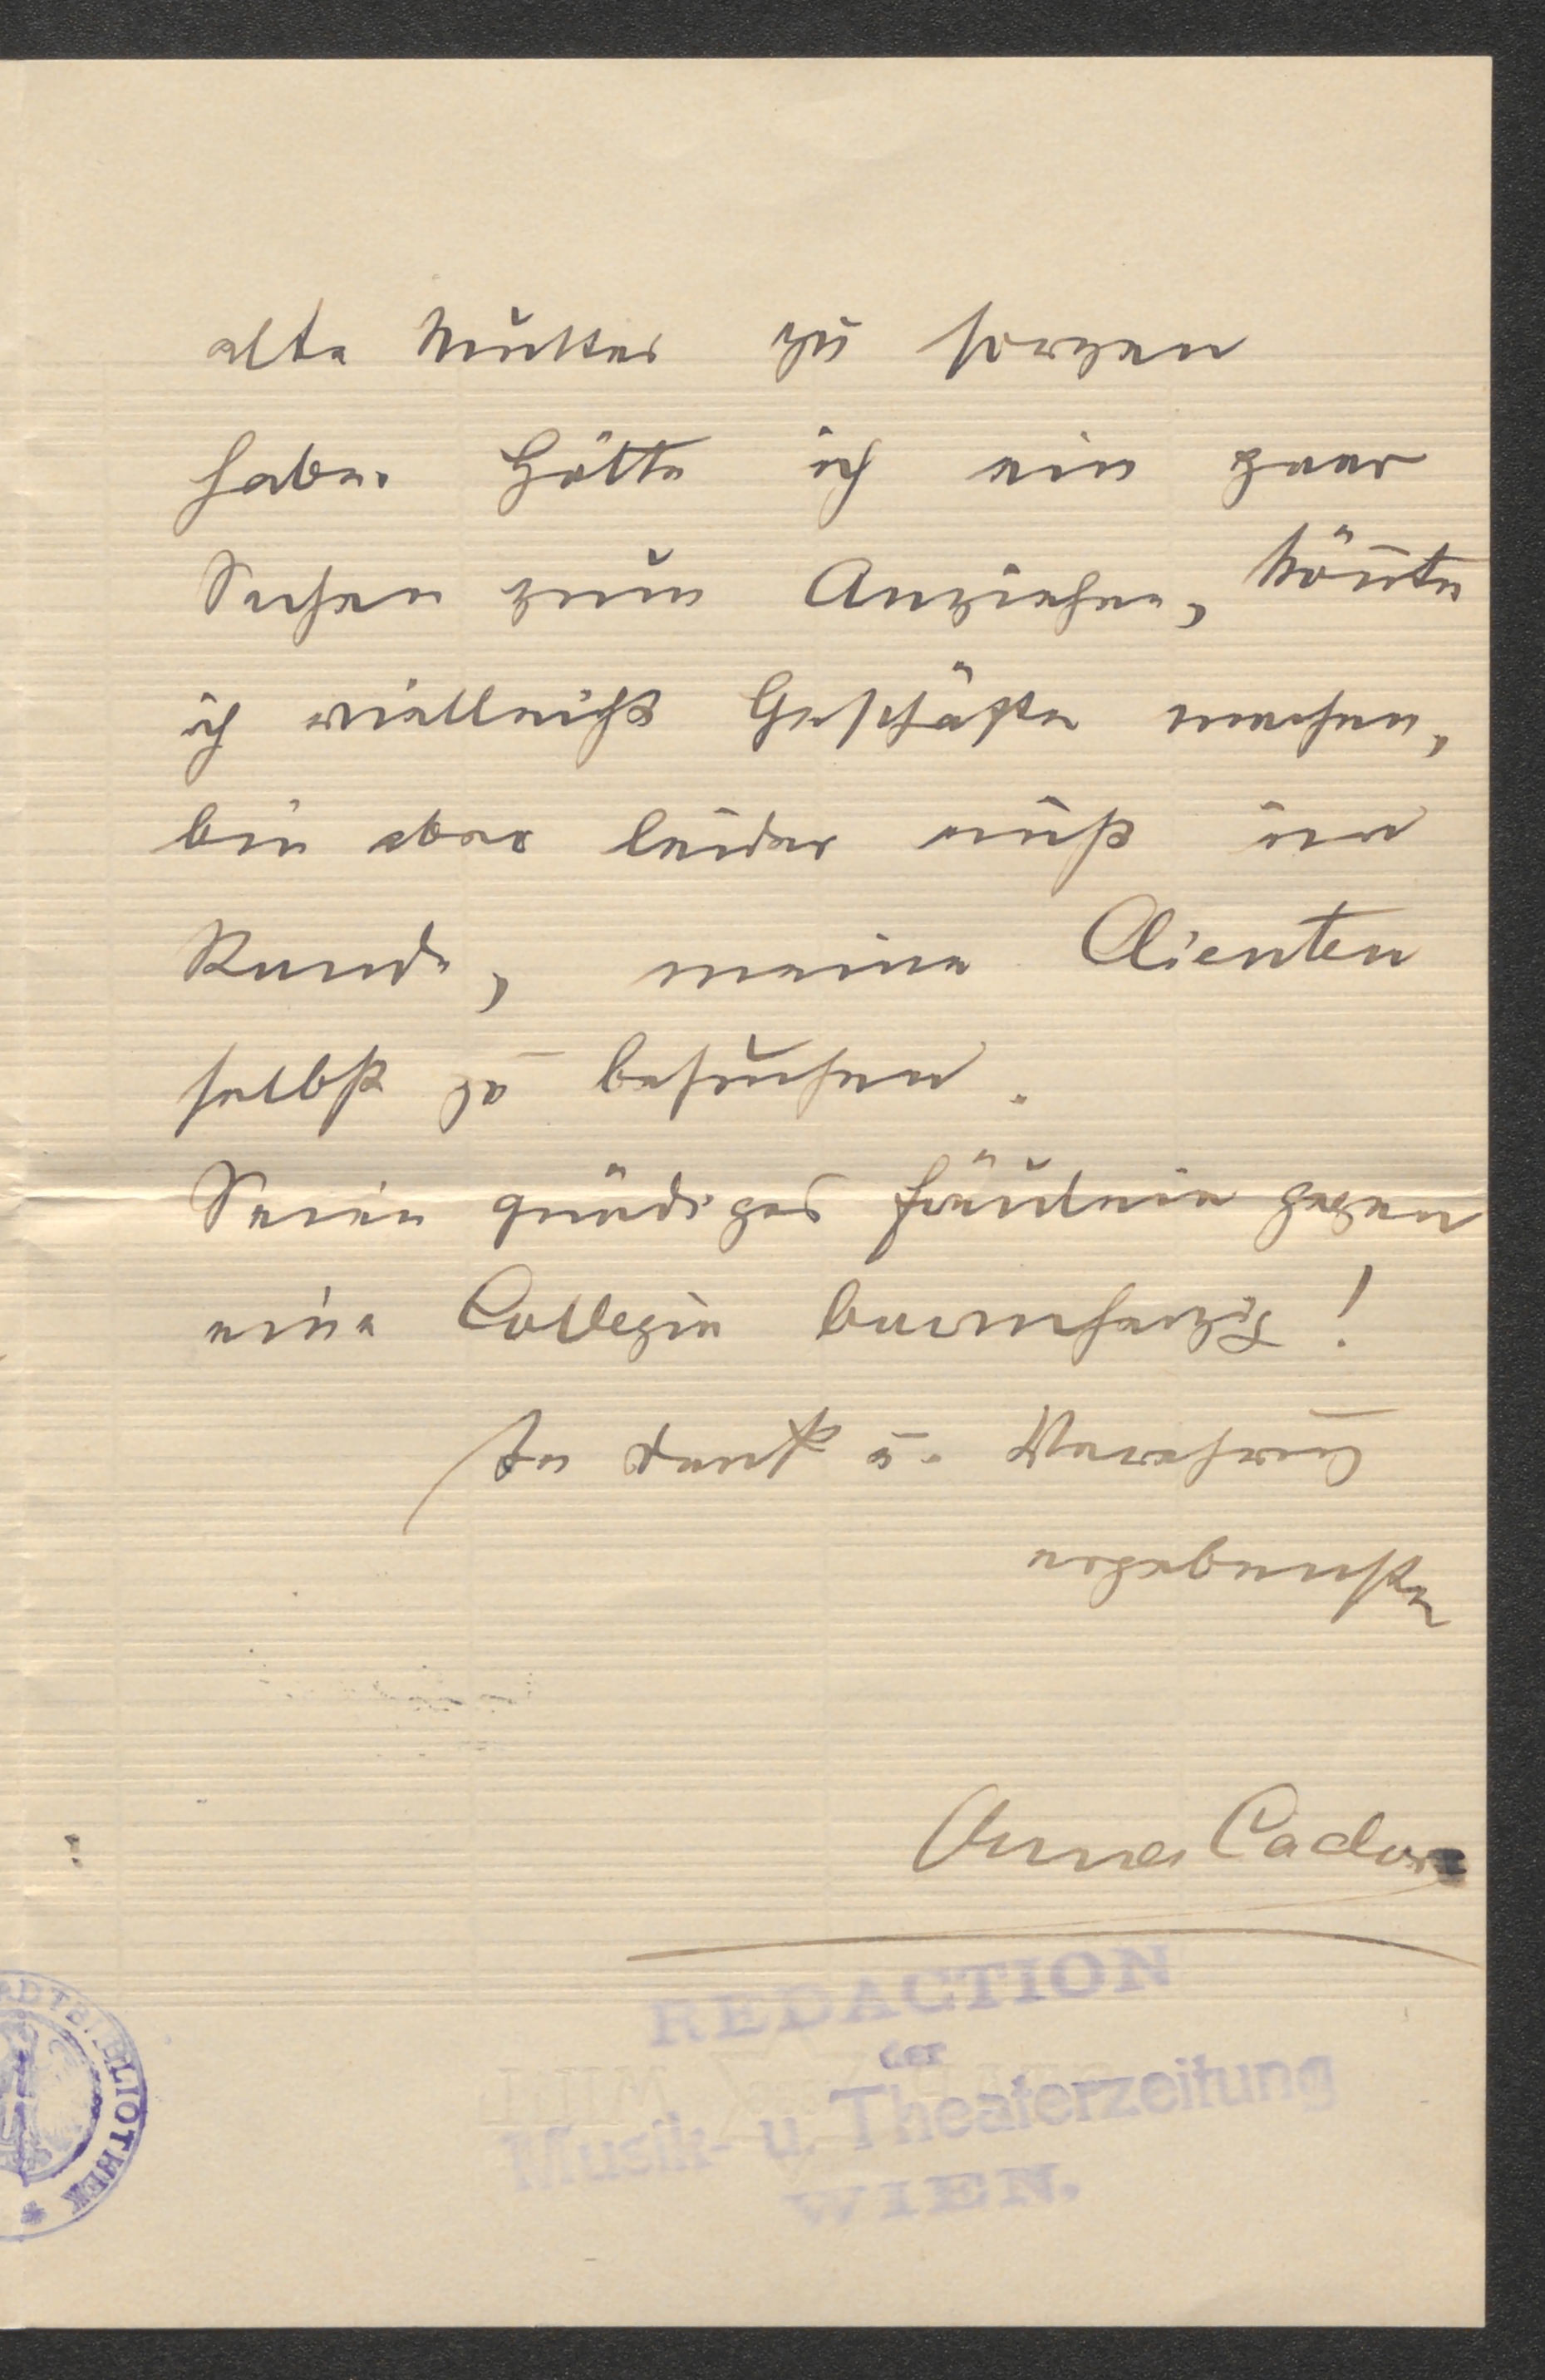 alte Mutter zu sorgen
habe. Hätte ich ein paar
Sachen zum Anziehen, könnte
ich vielleicht Geschäfte machen,
bin aber leider nicht im
Stande, meine Clienten
selbst zu besuchen.
Seien gnädiges Fräulein gegen
eine Collegin barmherzig!
In Dank u. Verehrung
ergebenste
Anna Cador
REDACTION
der
Musik- u. Theaterzeitung
WIEN.
STADTBIBLIOTHEK